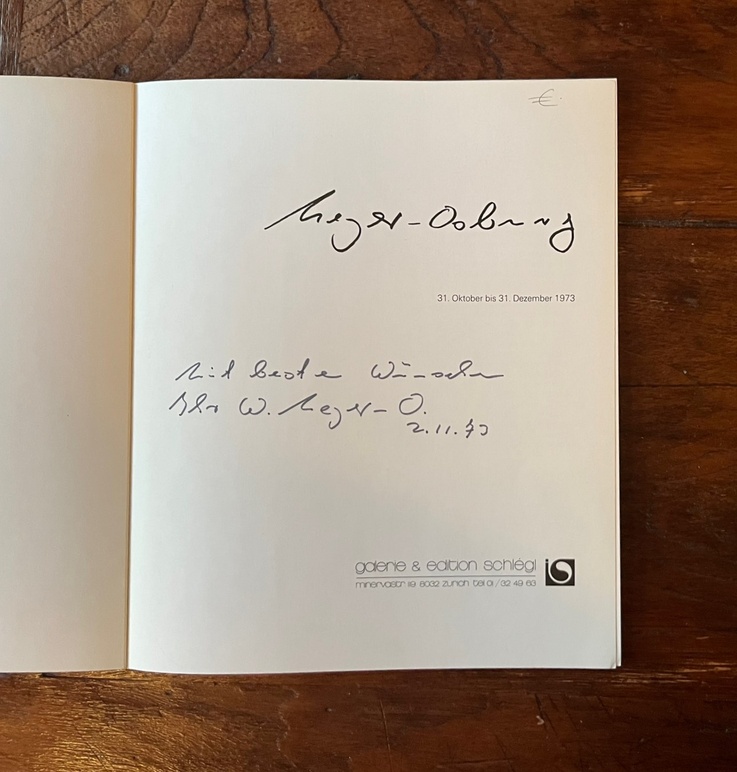 €
Meyer-Osburg
31. Oktober bis 31. Dezember 1973
Mit besten Wünschen
Ihr W. Meyer-O.
2.11.73
galerie & edition schlégl
minervastr 119 8032 zürich tel 01/32 49 63